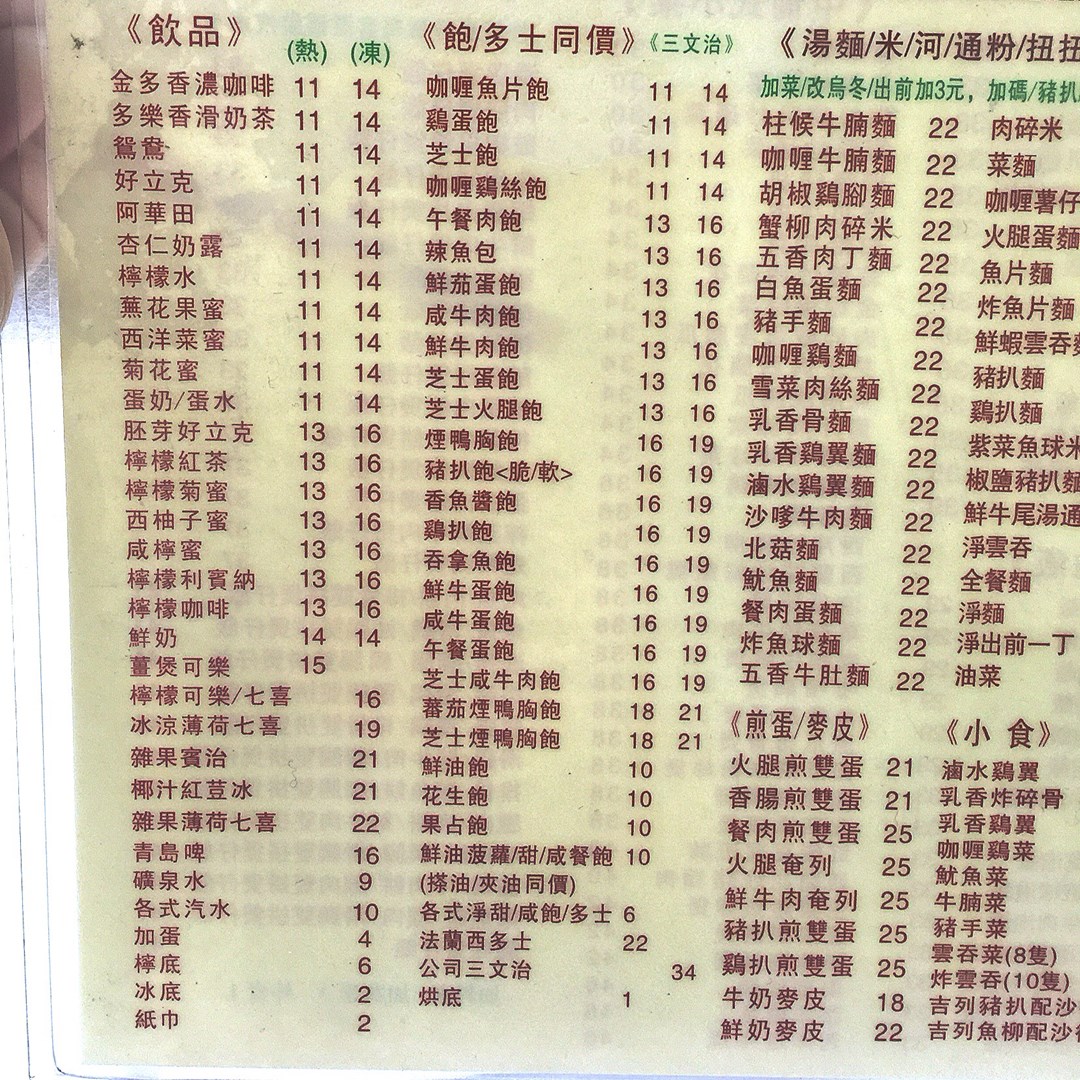 《飲品》
(熱) (凍)
金多香濃咖啡 11 14
多樂香滑奶茶 11 14
鴛鴦 11 14
好立克 11 14
阿華田 11 14
杏仁奶露 11 14
檸檬水 11 14
蕪花果蜜 11 14
西洋菜蜜 11 14
菊花蜜 11 14
蛋奶/蛋水 11 14
胚芽好立克 13 16
檸檬紅茶 13 16
檸檬菊蜜 13 16
西柚子蜜 13 16
咸檸蜜 13 16
檸檬利賓納 13 16
檸檬咖啡 13 16
鮮奶 14 14
薑煲可樂 15
檸檬可樂/七喜 16
冰涼薄荷七喜 19
雜果賓治 21
椰汁紅荳冰 21
雜果薄荷七喜 22
青島啤 16
礦泉水 9
各式汽水 10
加蛋 4
檸底 6
冰底
紙巾 2
《飽/多士同價》《三文治》
咖喱魚片飽 11 14
鷄蛋飽 11 14
芝士飽 11 14
咖喱鷄絲飽 11 14
午餐肉飽 13 16
辣魚包 13 16
鮮茄蛋飽 13 16
咸牛肉飽 13 16
鮮牛肉飽 13 16
芝士蛋飽 13 16
芝士火腿飽 13 16
煙鴨胸飽 16 19
豬扒飽<脆/軟> 16 19
香魚醬飽 16 19
鷄扒飽 16 19
吞拿魚飽 16 19
鮮牛蛋飽 16 19
咸牛蛋飽 16 19
午餐蛋飽 16 19
芝士咸牛肉飽 16 19
蕃茄煙鴨胸飽 18 21
芝士煙鴨胸飽 18 21
鮮油飽 10
花生飽 10
果占飽 10
鮮油菠蘿/甜/咸餐飽 10
(搽油/夾油同價)
各式淨甜/咸飽/多士 6
法蘭西多士 22
公司三文治 34
烘底 1
《湯麵/米/河/通粉/扭扭
加菜/改烏冬/出前加3元，加碼/豬扒
柱候牛腩麵 22
咖喱牛腩麵 22
胡椒鷄腳麵 22
蟹柳肉碎米 22
五香肉丁麵 22
白魚蛋麵 22
豬手麵 22
咖喱鷄麵 22
雪菜肉絲麵 22
乳香骨麵 22
乳香鷄翼麵 22
滷水鷄翼麵 22
沙嗲牛肉麵 22
北菇麵 22
魷魚麵 22
餐肉蛋麵 22
炸魚球麵 22
五香牛肚麵 22
肉碎米
菜麵
咖喱薯仔
火腿蛋麵
魚片麵
炸魚片麵
鮮蝦雲吞
豬扒麵
鷄扒麵
紫菜魚球米
椒鹽豬扒麵
鮮牛尾湯通
淨雲吞
全餐麵
淨麵
淨出前一丁
油菜
《煎蛋/麥皮》
火腿煎雙蛋 21
香腸煎雙蛋 21
餐肉煎雙蛋 25
火腿奄列 25
鮮牛肉奄列 25
豬扒煎雙蛋 25
鷄扒煎雙蛋 25
牛奶麥皮 18
鮮奶麥皮 22
《小食》
滷水鷄翼
乳香炸碎骨
乳香鷄翼
咖喱鷄菜
魷魚菜
牛腩菜
豬手菜
雲吞菜(8隻)
炸雲吞(10隻)
吉列豬扒配沙
吉列魚柳配沙